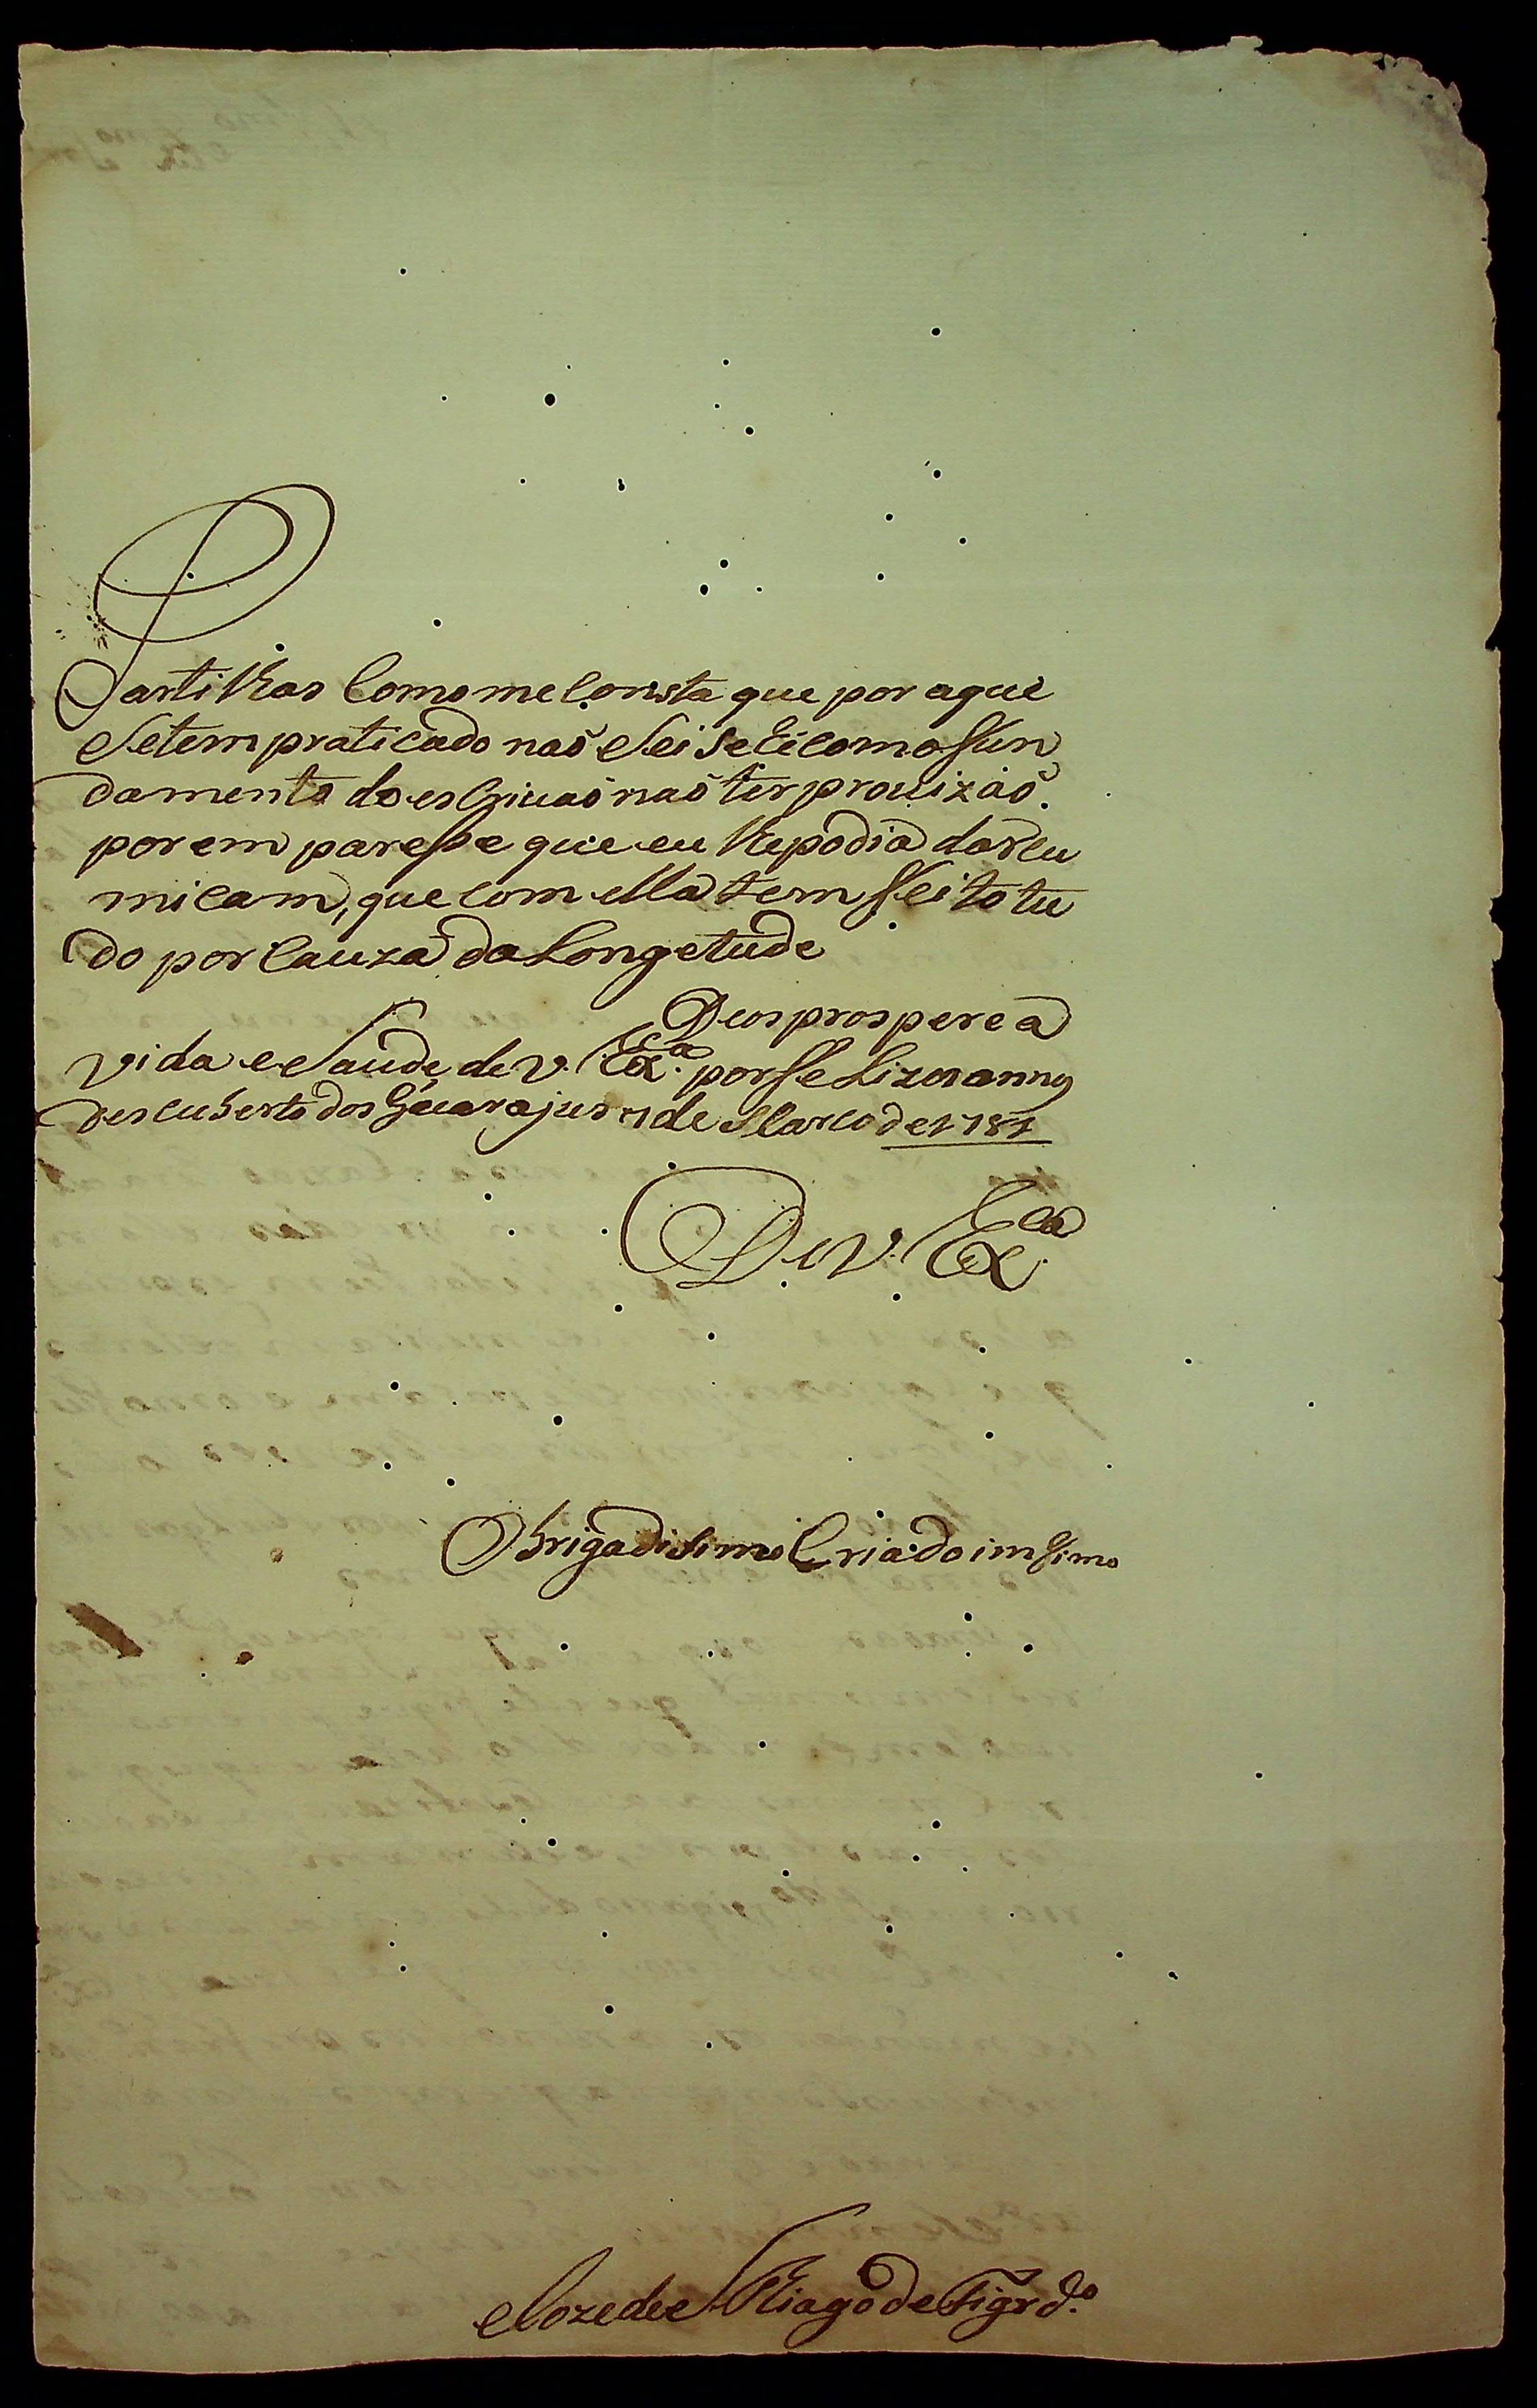 Partilhas como me consta que por aqui
se tem praticado naõ sei se hé como fun
damento do escrivaõ naõ ter provizaõ.
porem paresse que eu lhe podia dar cu
micam, que com ella tem feito tu
do por cauza da Longetude
Deos prospere a
vida e Saude de V. Exª. por felizes annos
descuberto dos Guarajus 7 de Marco de 1781
De V. Exᶜⁱᵃ
Obrigadisimo Criado imfimo
Joze de S Thiago de Figrdº.